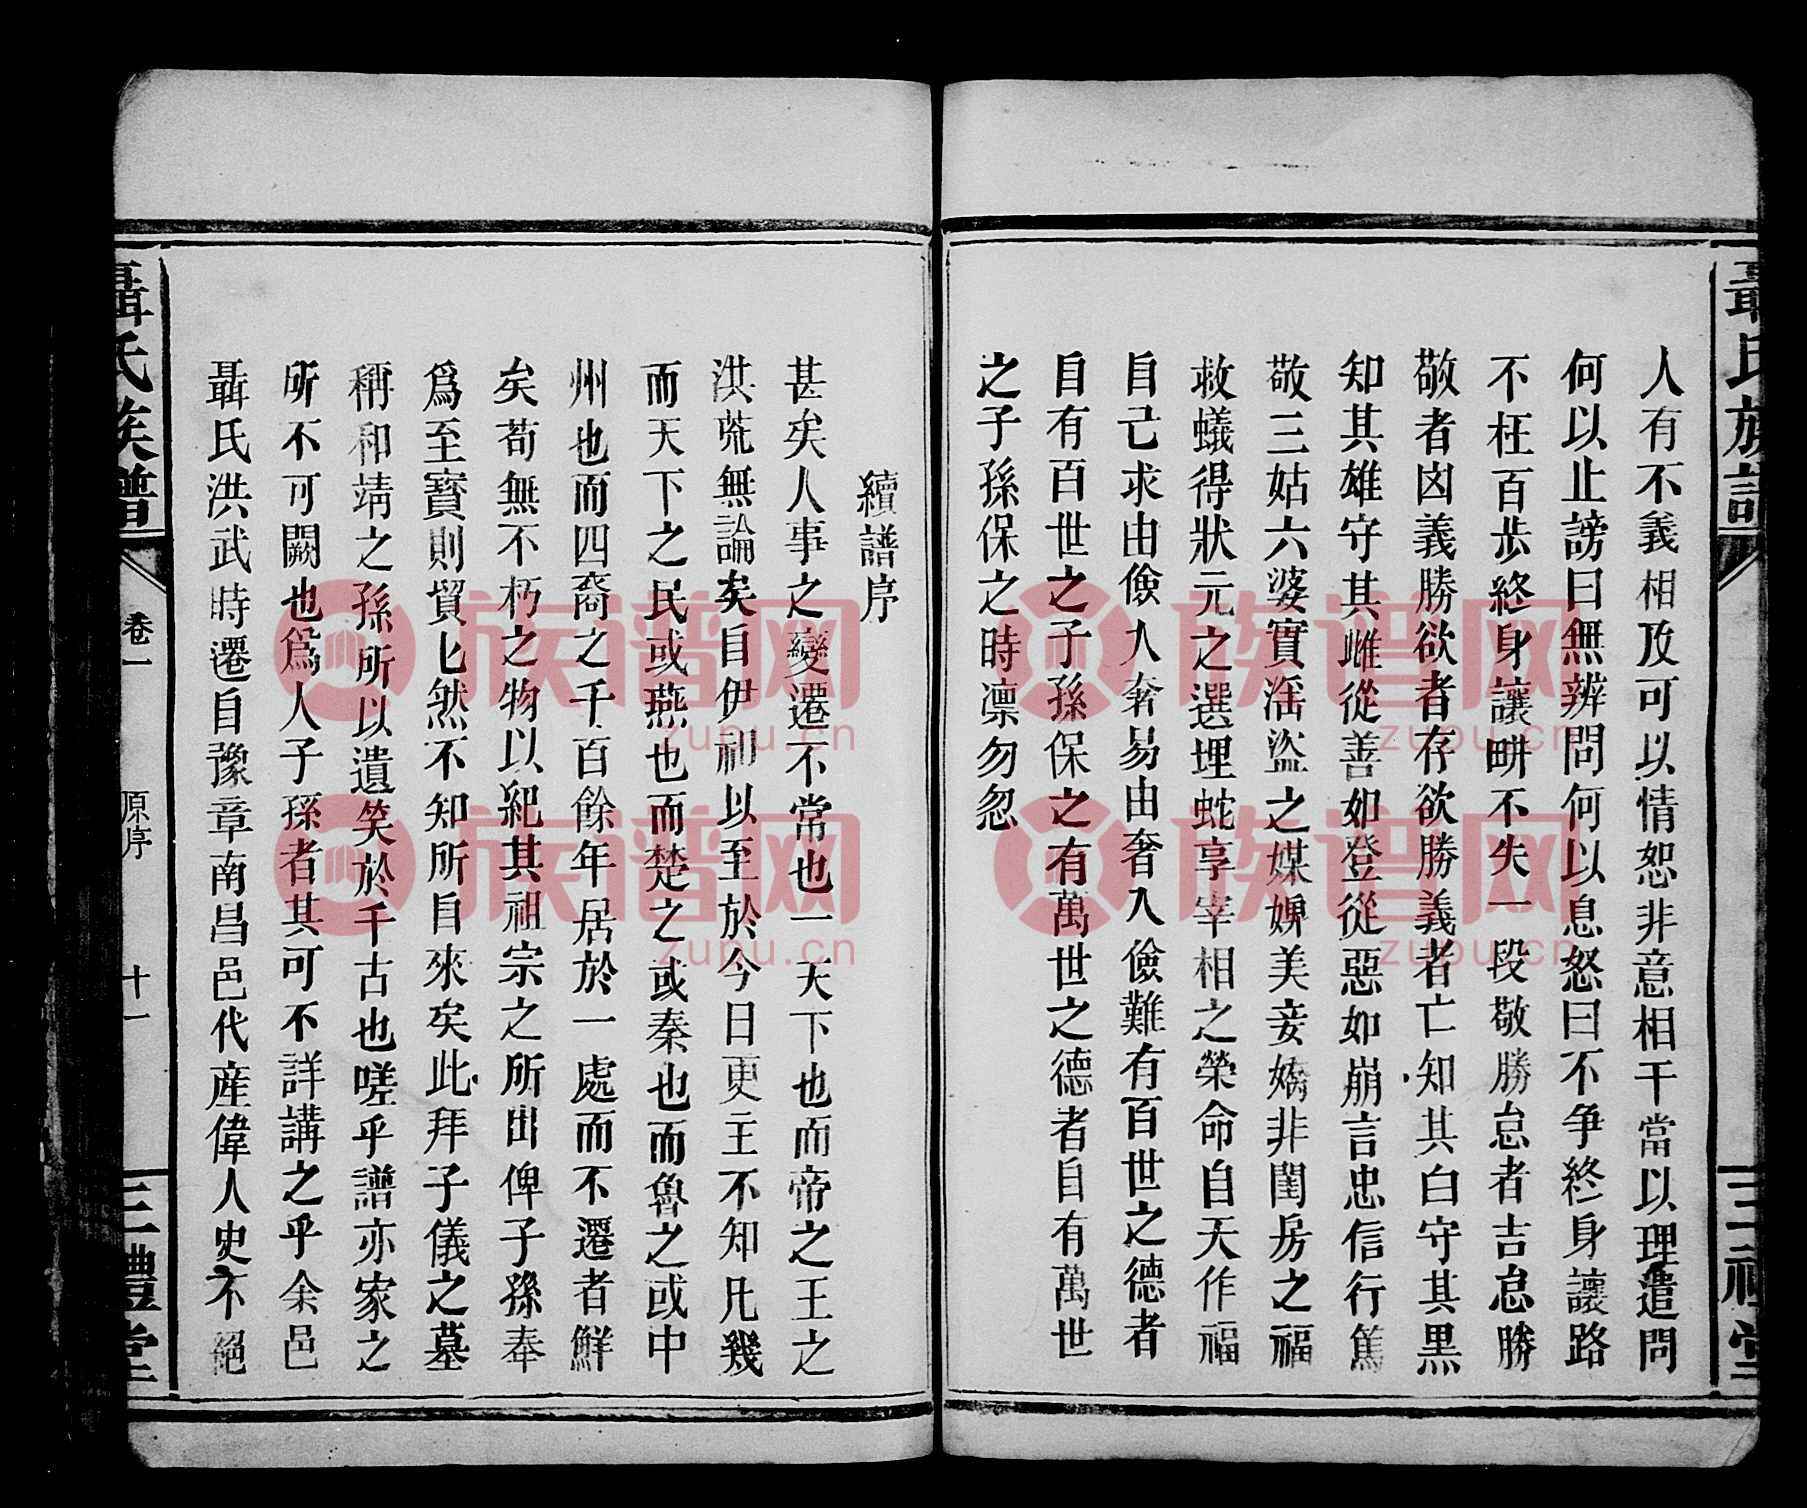 聶氏族譜
三禮堂
人有不義相及可以情恕非意相干當以理遣問
何以止謗曰無辨問何以息怒曰不爭終身讓路
不枉百步終身讓畔不失一段敬勝怠者吉怠勝
敬者凶義勝欲者存欲勝義者亡知其白守其黑
知其雄守其雌從善如登從惡如崩言忠信行篤
敬三姑六婆實淫盜之媒婢美妾嬌非閨房之福
救蟻得狀元之選埋蛇享宰相之榮命自天作福
自己求由儉入奢易由奢入儉難有百世之德者
自有百世之子孫保之有萬世之德者自有萬世
之子孫保之時凛勿忽
續譜序
甚矣人事之變遷不常也一天下也而帝之王之
洪荒無論矣自伊祁以至於今日更主不知凡幾
而天下之民或燕也而楚之或秦也而魯之或中
州也而四裔之千百餘年居於一處而不遷者鮮
矣苟無不朽之物以紀其祖宗之所出俾子孫奉
爲至寳則貿匕然不知所自來矣此拜子儀之墓
稱和靖之孫所以遺笑於千古也嗟乎譜亦家之
所不可闕也爲人子孫者其可不詳講之乎余邑
聶氏洪武時遷自豫章南昌邑代産偉人史不絕
聶氏族譜
卷一
原序
十一
三禮堂
族谱网
zupu.cn
族谱网
zupu.cn
族谱网
zupu.cn
族谱网
zupu.cn